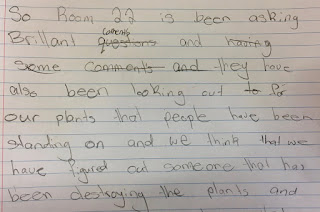 So Room 22 is been asking
Brillant questions coments and having
some comments and they have
also been looking out to for
our plants that people have been
standing on and we think that we
have figured out someone that has
been destroying the plants and